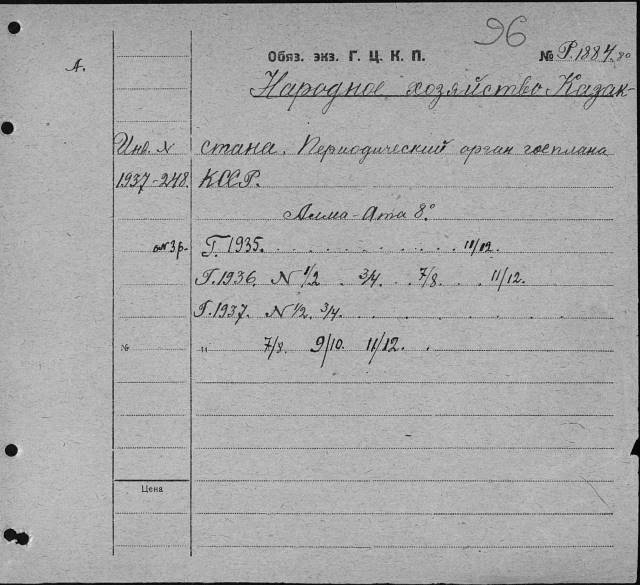 96
А.
Обяз. экз. Г. Ц. К. П. № Р.1884.80
Народное хозяйство Казак-
Инв. № стана. Периодический орган госплана
1937-248. КССР.
Алма-Ата 8°
Г. 1935. . . . . . . . . 11/12.
Г. 1936. N 1/2 . 3/4 . . 7/8. . . 11/12.
Г. 1937. N 1/2. 3/4. . . . . . .
№ " 7/8. 9/10. 11/12. .
Цена